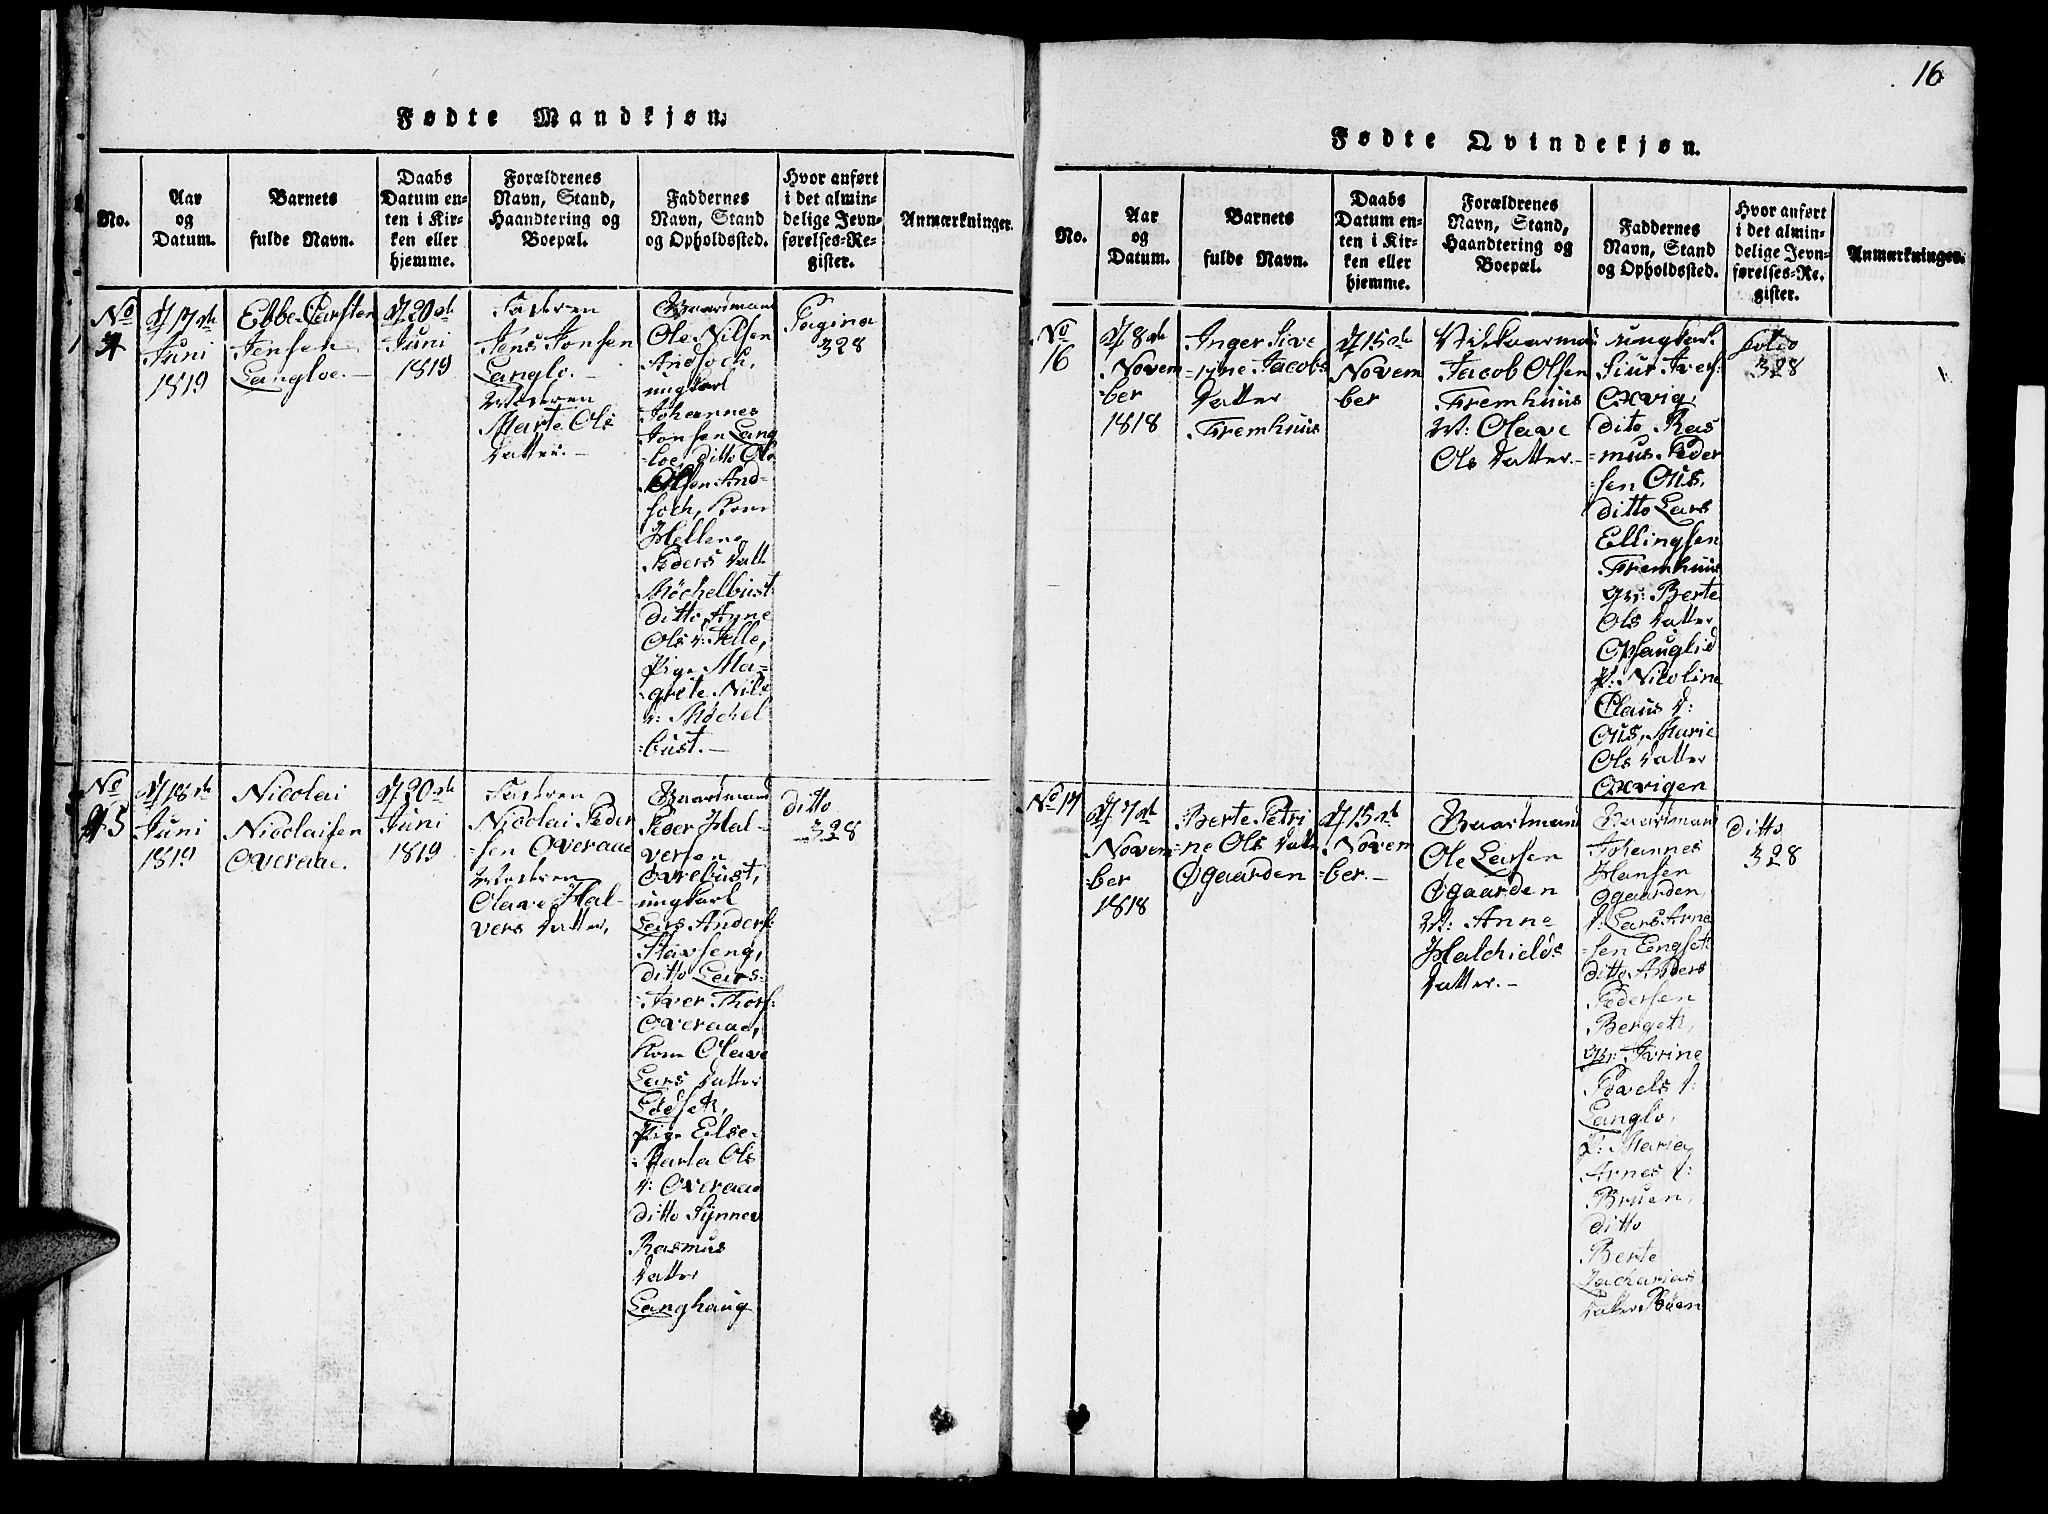 16
Fødte Mandkjøn.
No.
Aar
og
Datum.
Barnets
fulde Navn.
Daabs
Datum en-
ten i Kir-
ken eller
hjemme.
Forældrenes
Navn, Stand,
Haandtering og
Boepæl.
Faddernes
Navn, Stand
og Opholdssted.
Hvor anført
i det almin-
delige Jevn-
førelses-Re-
gister.
Anmærkninger.
No
4
d 17de
Juni
1819
Ebbe Carsten
Jensen
Langloe.
d 20de
Juni
1819
Faderen
Jens Jonsen
Langlo.
Moderen
Marte Ols
Datter.
Gaardmand
Ole Nilsen
Andfoch,
ungkarl
Johannes
Jonsen Lang
loe, ditto Ole
Olsen And-
foch, Kone
Hellene
Peders Datt
Möchelbust
ditto Ane
Ols D: Felle,
Pige Ma-
grete Nils
D: Möchel
bust.
Pagina
328
No
5
d 18de
Juni
1819
Nicolai
Nicolaisen
Overaae.
d 20de
Juni
1819
Faderen
Nicolai Peder
sen Overaae
Moderen
Olave Hal-
vers Datter,
Gaardmand
Peder Hal-
versen
Ovrebust,
ungkarl
Lars Anders:
Stavseng,
ditto Lars
Iver Thors:
Overaae,
Kone Olave
Lars Datter
Pige Else
Maria Ols
D: Overaae
ditto Synnev
Rasmus
Datter
Langhaug
ditto
328
Fødte Qvindekjøn.
No.
Aar
og
Datum.
Barnets
fulde Navn.
Daabs
Datum en-
ten i Kir-
ken eller
hjemme.
Forældrenes
Navn, Stand,
Haandtering og
Boepæl.
Faddernes
Navn, Stand
og Opholdssted.
Hvor anført
i det almin-
delige Jevn-
førelses-Re-
gister.
Anmærkninger.
No
16
d 8de
Novem
ber
1818
Inger Sive
rine Jacobs
Datter
Fremhuus
d 15de
Novem
ber
Jacob Olsen
Fremhuus
M: Olave
Ols Datter.
ungkarl
Siur Ivers:
Oxvig,
dito Ras
mus Peder
sen Ous,
ditto Lars
Ellingsen
Fremhuus
Berte
Ols Datter
Opsauglid
P: Nicoline
Claus D:
Ous, Marie
Ols Datter
Oxvigen
folio
328
No 17
d 7de
Novem
ber
1818
Berte Petri
ne Ols Datt
Øgaarden
d 15de
Novem
ber.
Gaardmand
Ole Larsen
Øgaarden
M: Anne
Halchields
Datter.
Gaardmand
Johannes
Hansen
Øgaarden,
Lars Arne
sen Engset
ditto Anders
Pedersen
Berget,
Ivrine
Povels
Langlo,
P: Maria
Arnes
Bruen,
ditto
Berte
Zacharias
Datter Böen
ditto
328